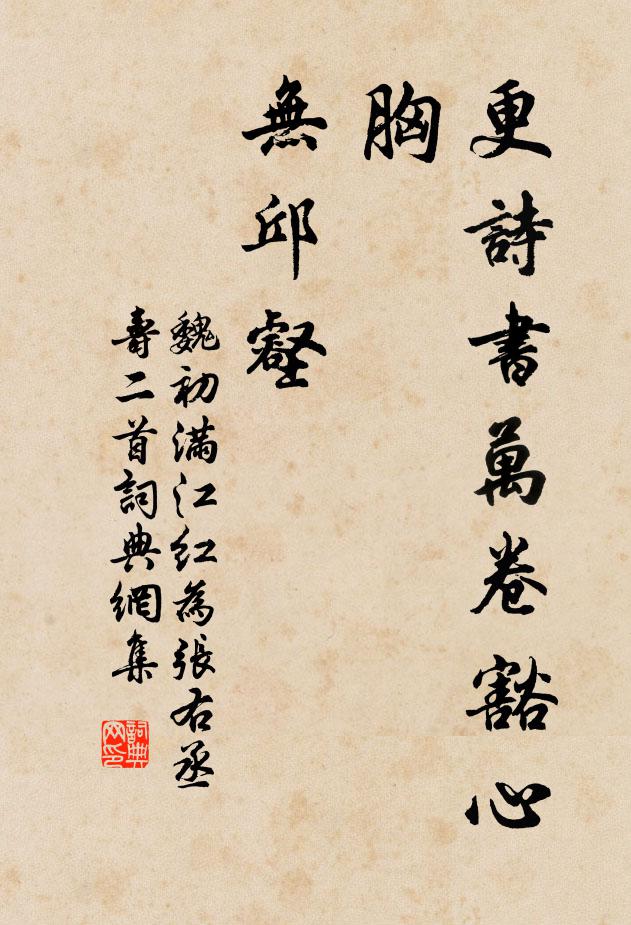 更詩書萬卷豁心
胸
無邱壑
魏初滿江紅為張右丞
壽二首詞典網集
詞典
网印